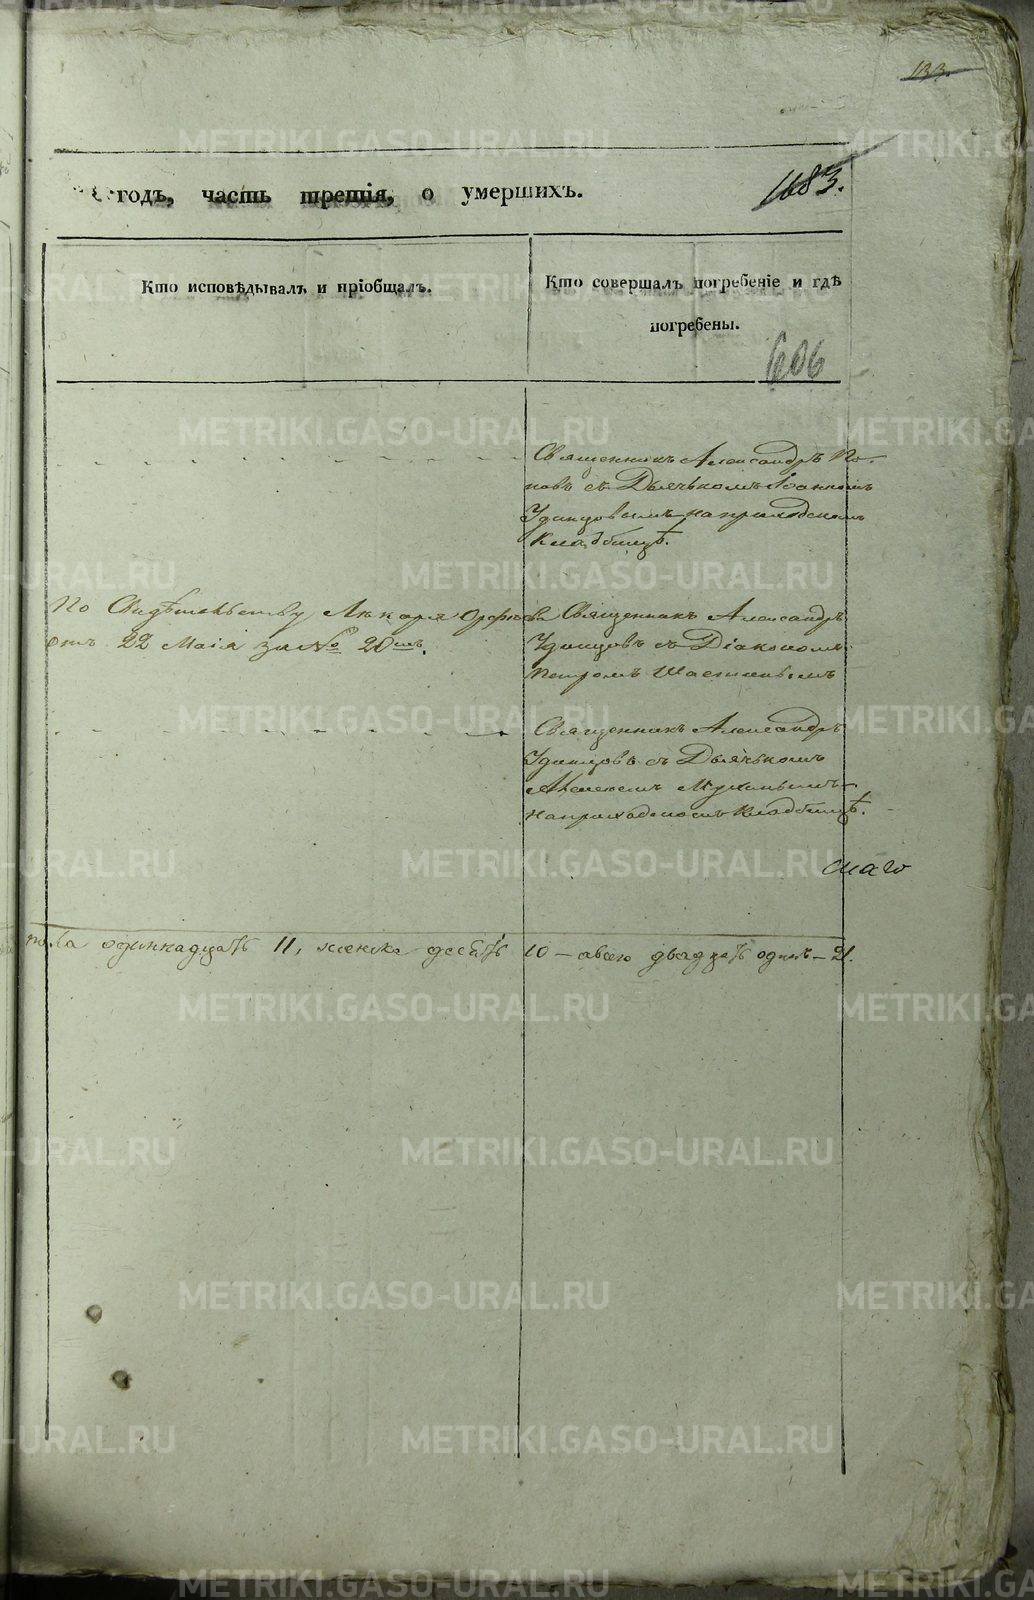 133.
годъ, часть третія, о умершихъ.
1683.
Кто исповѣдывалъ и пріобщалъ.
Кто совершалъ погребеніе и гдѣ
погребены.
606
Священникъ Александръ По-
повъ съ Дьячькомъ Іоанномъ
Удинцовымъ на приходскомъ
Кладбищѣ.
По Свидѣтельству Лѣкаря
отъ 22 Маія за № 20мъ.
Священникъ Александръ
Удинцовъ съ Діакономъ
Петромъ
Священникъ Александръ
Удинцовъ съ Дьячькомъ
Алексѣемъ
на приходскомъ Кладбищѣ.
скаго
пола одиннадцать 11, женска десять 10 – а всего двадцать одинъ – 21.
METRIKI.GASO-URAL.RU